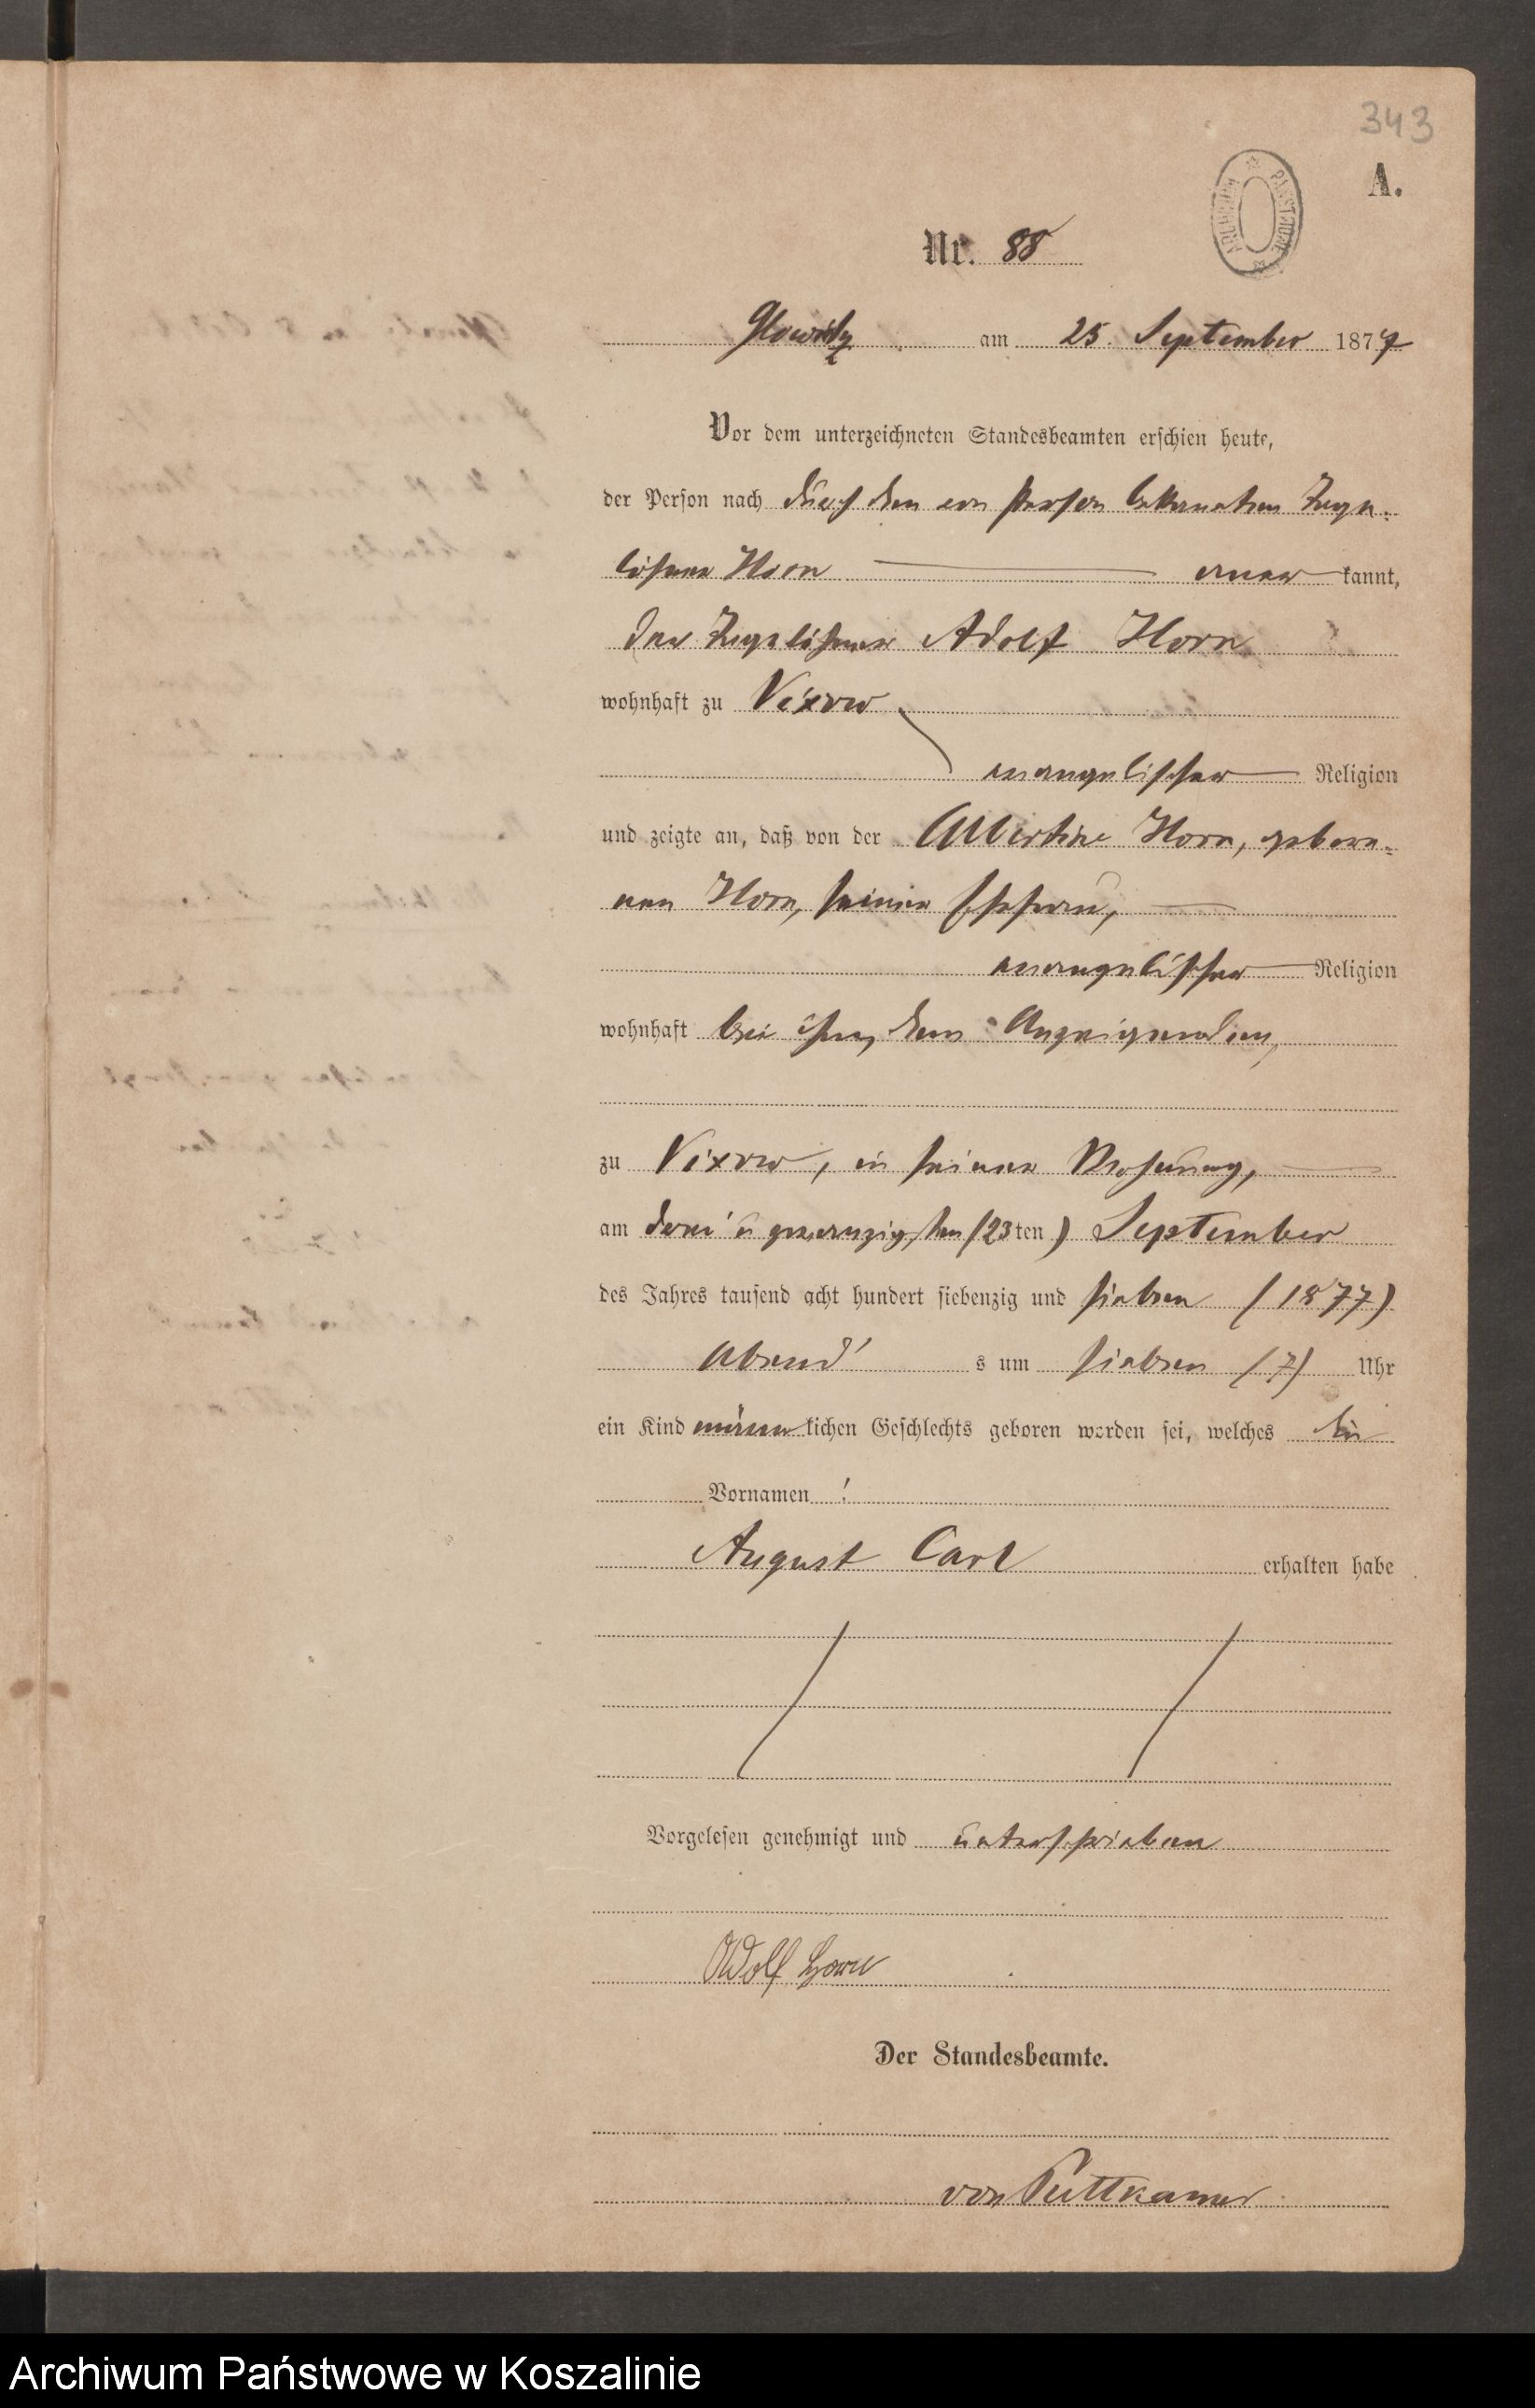 343
A.
ARCHIWUM PAŃSTWOWE
Nr. 88
Glowitz am 25. September 1877
Vor dem unterzeichneten Standesbeamten erschien heute,
der Person nach durch den von Person bekannten
Horn kannt,
der Adolf Horn
wohnhaft zu Vixow
evangelischer Religion
und zeigte an, daß von der Albertine Horn, gebore-
nen Horn, seiner Ehefrau,
evangelischer Religion
wohnhaft bei ihm, dem Anzeigenden,
zu Vixow, in seiner Wohnung,
am drei u zwanzigsten (23ten) September
des Jahres tausend acht hundert siebenzig und sieben (1877)
Abend s um sieben (7) Uhr
ein Kind männlichen Geschlechts geboren worden sei, welches die
Vornamen :
August Carl erhalten habe
Vorgelesen genehmigt und unterschrieben
Adolf Horn
Der Standesbeamte.
von Puttkamer
Archiwum Państwowe w Koszalinie